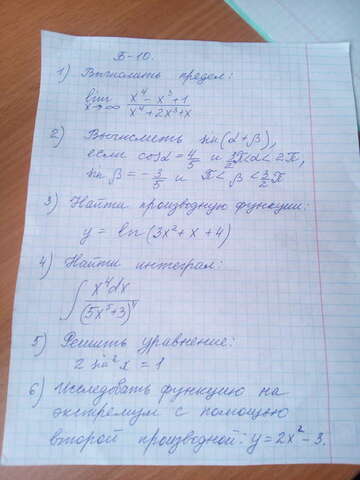 Б-10.
1) Вычислить предел:
lim x→∞ (x⁴ - x³ + 1)/(x⁴ + 2x³ + x)
2) Вычислить sin(α+β),
если cosα = 4/5 и 3/2π<α<2π,
sin β = -3/5 и π<β<3/2π
3) Найти производную функции:
y = ln(3x² + x + 4)
4) Найти интеграл:
∫ x⁴dx/(5x⁵+3)⁴
5) Решить уравнение:
2 sin²x = 1
6) Исследовать функцию на
экстремум с помощью
второй производной: y = 2x² - 3.